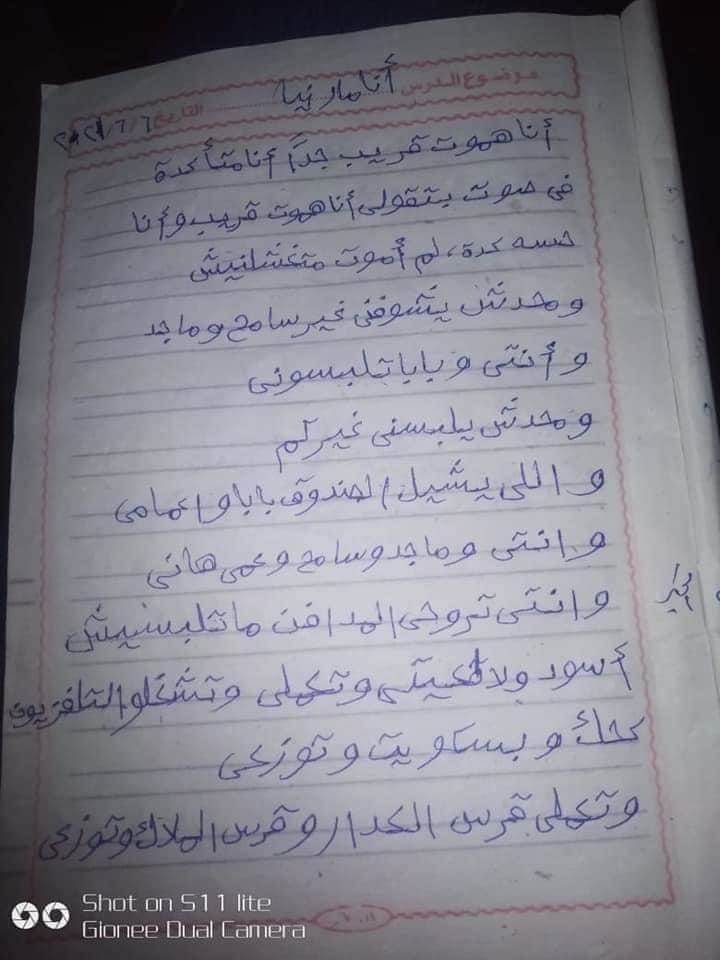 موضوع الدرس أنا مارنيا التاريخ ٢٠٢١/٦/٦
أنا هموت قريب جداً أنا متأكدة
فى صوت بتقولى أنا هموت قريب وأنا
حسه كدة، لم أموت متغسلنيش
ومحدش يشوفنى غير سامح وماجد
وأنتى وبابا تلبسونى
ومحدش يلبسنى غيركم
واللى يشيل الصندوق بابا واعمامى
وانتى وماجد وسامح وعمى هانى
وانتى تروحى المدافن ماتلبسيش
أسود ولا تعيطى وتعملى وتشغلو التلفزيون
كحك وبسكويت وتوزعى
وتعملى قرس العدار وقرس الملاك وتوزعى
Shot on S11 lite
Gionee Dual Camera